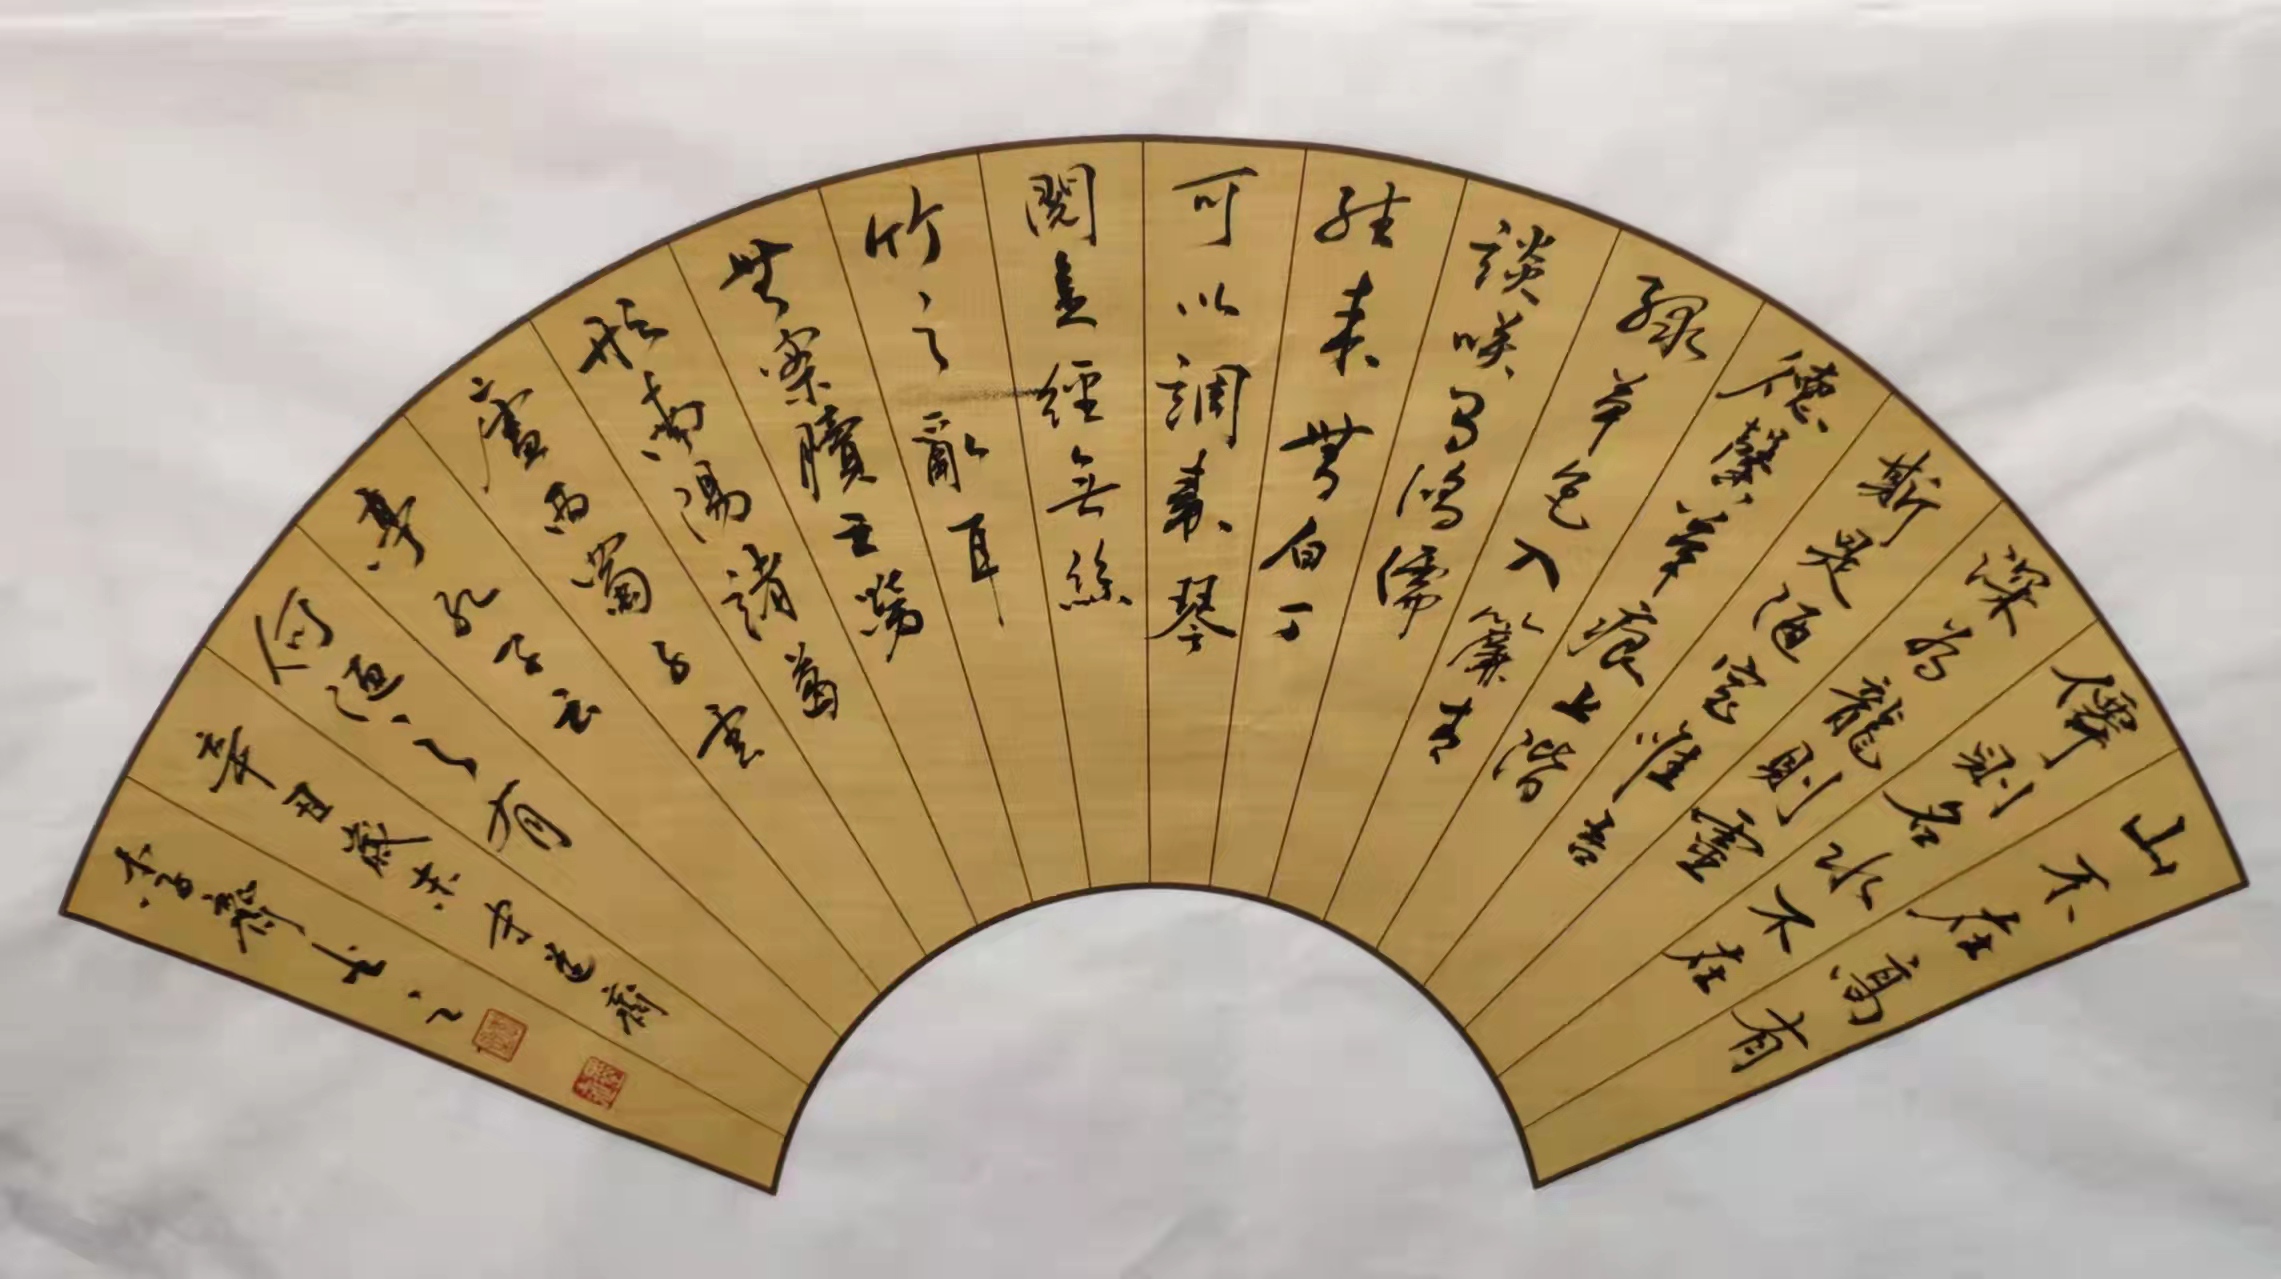 山不在高有
僊則名水不在
深有龍則靈
斯是陋室惟吾
德馨苔痕上階
緑草色入簾青
談咲有鴻儒
往来無白丁
可以調素琴
閱金經無絲
竹之亂耳
無案牘之勞
形南陽諸葛
廬西蜀子雲
亭孔子云
何陋之有
辛丑歲末于